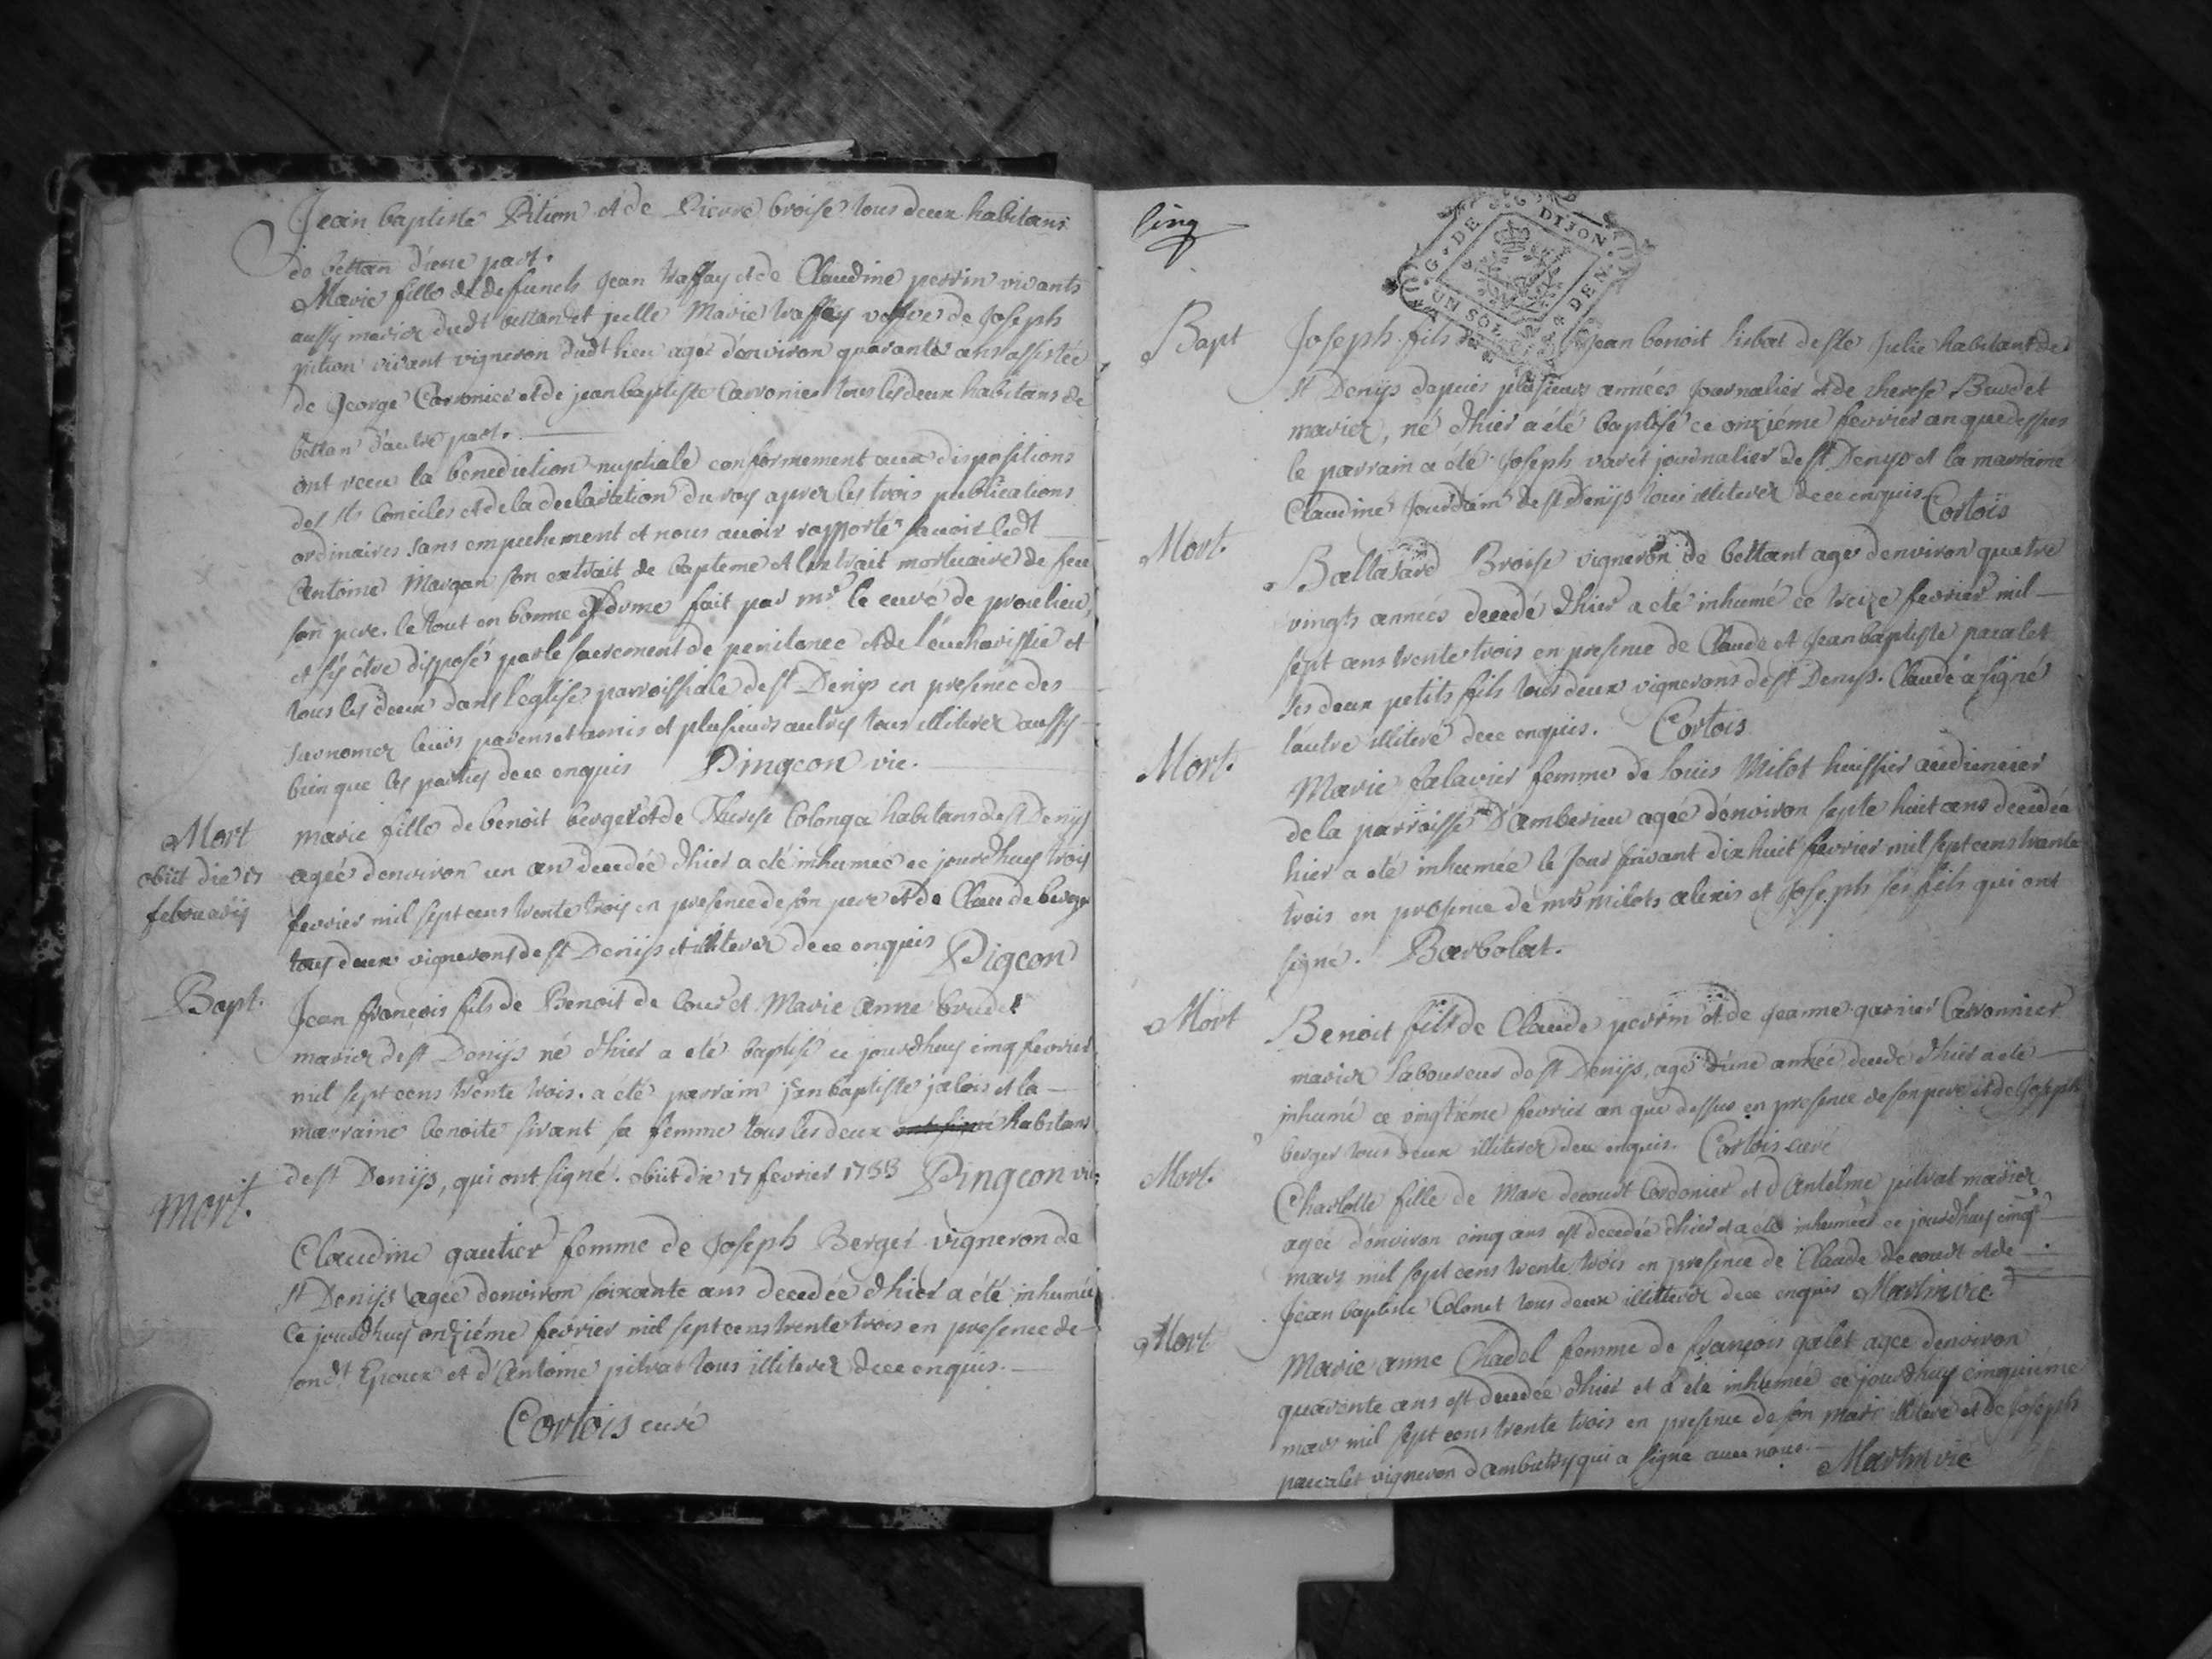 Jean baptiste Pition et de Pierre broise tous deux habitans
de bettan d'une part.
Marie fille de defuncts Jean traffay et de Claudine perrin vivants
aussy mariez dudt bettan et jcelle Marie traffay veffve de Joseph
pition vivant vigneron dudt lieu agée d'environ quarante ans assistée
de George Carronier et de jean baptiste Carronier tous les deux habitans de
bettan d'autre part.
ont receu la benediction nuptiale conformement aux dispositions
des sts Conciles et de la declaration du roy aprez les trois publications
ordinaires sans empechement et nous avoir rapporté sauoir ledt
Antoine Margan son extrait de bapteme et l'extrait mortuaire de feu
son pere. le tout en bonne et forme fait par mr le curé de proulieu,
et s'y être disposé par le sacrement de penitence et de l'eucharistie et
tous les deux dans l'eglise parroissiale de st Denys en presence des
surnomez leurs parens et amis et plusieurs autres tous illiterez aussy
bien que les parties dece enquis Pingeon vic.
Mort
obiit die 17
februarij
marie fille de benoit berger et de Therese Colonga habitans de st Denys
agée denviron un an decedée d'hier a eté inhumée ce jourdhuy trois
fevrier mil sept cens trente trois en presence de son pere et de Claude berger
tous deux vignerons de st Denijs et illiterez de ce enquis Pigeon
Bapt.
Jean françois fils de Benoit de Cour et Marie anne brudet
mariez de st Denijs né d'hier a eté baptisé ce jourdhuy cinq fevrier
mil sept cens trente trois. a été parrain jean baptiste jalois et la
marraine benoite sivant sa femme tous les deux habitans
de st Denijs, qui ont signé. obiit die 17 fevrier 1733 Pingeon vic.
Mort.
Claudine gautier femme de Joseph Berger vigneron de
st Denijs agée denviron soixante ans decedée d'hier a été inhumée
Ce jourdhuy onziéme fevrier mil sept cens trente trois en presence de
sondt Epoux et d'Antoine pitrat tous illiterez dece enquis.
Cortois curé
Cinq
G. DE DIJON
UN SOL DEN.
Bapt
Joseph fils Jean benoit de ste Julie habitant de
st Denys depuis plusieurs années journalier et de therese Burdet
mariez, né d'hier a été baptisé ce onziéme fevrier an que dessus
le parrain a été Joseph varet journalier de st Denys et la marraine
Claudine Jourdain de st Denijs tous illiterez dece enquis Cortois
Mort.
Baltasard Broise vigneron de bettant agé denviron quatre
vingts années decedé d'hier a eté inhumé ce treize fevrier mil
sept cens trente trois en presence de Claude et Jean baptiste pacalet
ses deux petits fils tous deux vignerons de st Denys. Claude a signé
l'autre illiteré dece enquis. Cortois
Mort.
Marie falavier femme de Louis Milot huissier audiencier
de la parroisse d'amberieu agée d'environ septe huit ans decedée
hier a eté inhumée le jour suivant dix huit fevrier mil sept cens trente
trois en presence de mrs milots alexis et Joseph ses fils qui ont
signé. Barbolat.
Mort
Benoit fils de Claude perrin et de jeanne garnier Carronnier
mariez laboureur de st Denijs, agé d'une année decedé d'hier a eté
inhumé ce vingtième fevrier an que dessus en presence de son pere et de Joseph
berger tous deux illiterez dece enquis. Cortois curé
Mort.
Charlotte fille de Marc decourt Cordonier et d'Antelme pitrat mariez
agée d'environ cinq ans est decedée d'hier et a eté inhumée ce jourdhuy cinq
mars mil sept cens trente trois en presence de Claude decourt et de
Jean baptiste Colonet tous deux illitterez dece enquis Martin vic
Mort
Marie anne Chadel femme de françois galet agée denviron
quarente ans est decedée d'hier et a eté inhumée ce jourdhuy cinquiéme
mars mil sept cens trente trois en presence de son mari illiteré et de Joseph
pacalet vigneron d'ambutrix qui a signé avec nous. Martin vic